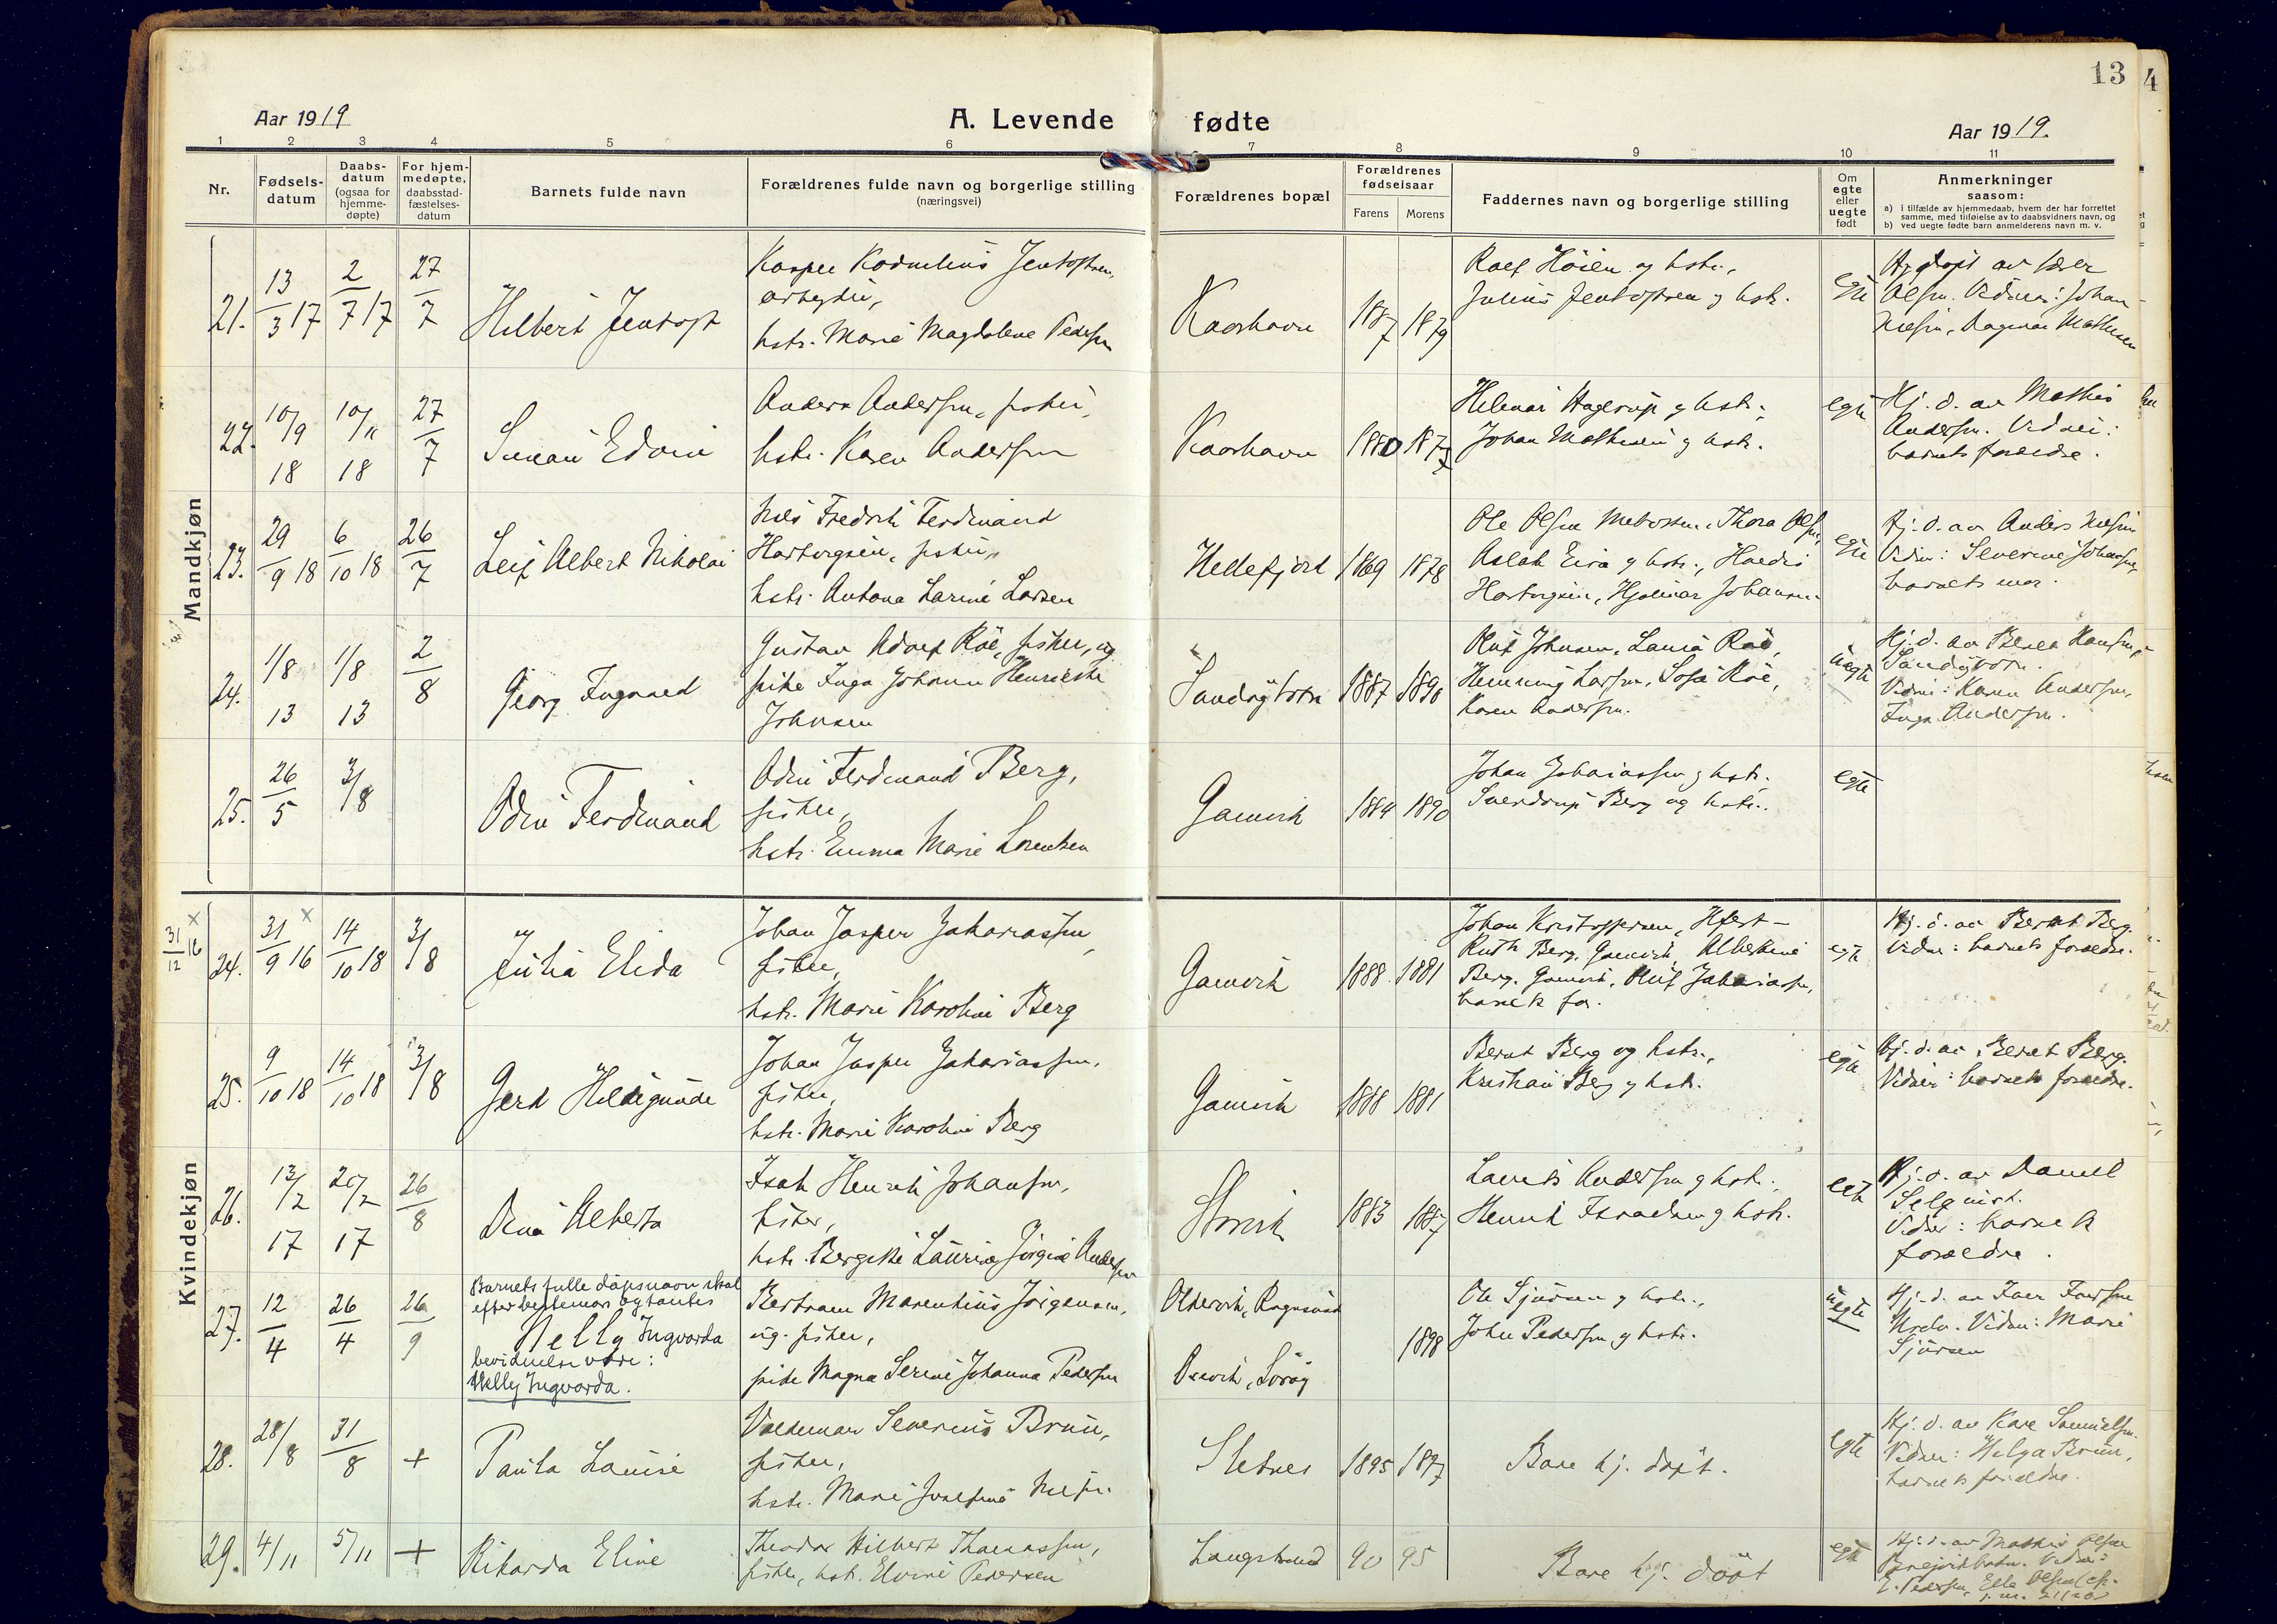 13
4
Aar 1919
A. Levende fødte
Aar 1919.
1 2 3 4 5 6 7 8 9 10 11
Nr.
Fødsels-
datum
Daabs-
datum
(ogsaa for
hjemme-
døpte)
For hjem-
medøpte,
daabsstad-
fæstelses-
datum
Barnets fulde navn
Forældrenes fulde navn og borgerlige stilling
(næringsvei)
Forældrenes bopæl
Forældrenes
fødselsaar
Farens Morens
Faddernes navn og borgerlige stilling
Om
egte
eller
uegte
født
Anmerkninger
saasom:
a) i tilfælde av hjemmedaab, hvem der har forrettet
samme, med tilføielse av to daabsvidners navn, og
b) ved uegte fødte barn anmelderens navn m. v.
Mandkjøn
21.
13/3 17
2/7 17
27/7
Hilbert Jentoft
Kasper Kornelius Jentoftsen,
arbeider,
hstr. Marie Magdalene Pedersen
Kaarhavn
1887
1879
Rolf Höien og hstr.,
Julius Jentoftsen og hstr.
Egte
Olsen. Vidner: Johan
Nielsen, Dagmar Mathisen
22.
10/9
18
10/11
18
27/7
Sunari Edvin
Anders Andersen, fisker,
hstr. Karen Andersen
Kaarhavn
1880
1877
Helmer Hagerup og hstr.,
Johan Mathisen og hstr.
egte
Hj. d. av Mathis
Andersen. Vidner:
barnets forældre.
23.
29/9 18
6/10 18
26/7
Leif Albert Nikolai
Nils Fredrik Ferdinand
fisker,
hstr. Antona Larine Larsen
Hellefjord
1869
1878
Ole Olsen Thora Olsen,
Aslak Eira og hstr.,
Hjalmar Johansen.
Egte
Hj. d. av Anders Nielsen
Vidner: Severine Johansen,
barnets mor.
24.
1/8
13
1/8
13
2/8
Georg Ingvald
Gustav Adolf Röe, fisker, og
pike Inga Johanne Henriette
Johnsen
Sandöybotn
1887
1890
Oluf Johnsen, Laura Röe,
Henning Larsen, Sofie Röe,
Karen Andersen.
uegte
Hj. d. av Hansen,
Sandöybotn.
Vidner: Karen Andersen,
Inga Andersen.
25.
26/5
3/8
Odin Ferdinand
Odin Ferdinand Berg,
fisker,
hstr. Emma Marie Lorentsen
Gamvik
1884
1890
Johan Zakariassen og hstr.
Sverdrup Berg og hstr.
egte
Kvindekjøn
31/12 16 x
24.
31/9 16 x
14/10 18
3/8
Julia Elida
Johan Jasper Zakariassen,
fisker,
hstr. Marie Karoline Berg
Gamvik
1888.
1881
Johan Kristoffersen, Hfest-
Ruth Berg, Gamvik, Albertine
Berg, Gamvik, Oluf Zakariassen,
barnets far.
egte
Hj. d. av Bernt Berg.
Vidner: barnets forældre.
25.
9/10 18
14/10 18
3/8
Gerd Hildegunde
Johan Jasper Zakariassen,
fisker,
hstr. Marie Karoline Berg
Gamvik
1888
1881
Bernt Berg og hstr.,
Kristian Berg og hstr.
egte
Hj. d. av Bernt Berg.
Vidner: barnets forældre.
26.
13/2
17
20/2
17
26/8
Dina Alberta
Isak Henrik Johansen,
fisker,
hstr. Bergitte Laurine Jörgine Andersen
Storvik
1883
1887
Laurits Andersen og hstr.,
Henrik Israelsen og hstr.
egte
Hj. d. av Daniel
Selqvist.
Vidner: barnets
forældre.
27.
12/4
26/4
26/9
Barnets fulle dåpsnavn skal
efter bestemors og tantes
Nelly Ingvarda
bevidnelse være:
Nelly Ingvarda.
Bertram Marentius Jörgensen,
ug. fisker,
pike Magna Serine Johanna Pedersen
Oldervik,
Sörøy
1898
Ole Sjursen og hstr.,
John Pedersen og hstr.
uegte
Hj. d. av Iver Iversen
Vidner: Marie
Sjursen
28.
28/8
31/8
+
Paula Louise
Valdemar Severius Bruun,
fisker,
hstr. Marie Josefine Nilsen
Sletnes
1895
1897
Bare hj. döpt.
egte
Hj. d. av Kare Samuelsen.
Vidner: Helga Bruun,
barnets forældre.
29.
4/11
5/11
+
Rikarda Eline
Theodor Hilbert Thomassen,
fisker, hst. Elvine Pedersen
Langstrand
90
95
Bare hj. döpt
egte
Hj. d. av Mathis Olsen
Vidner:
E. Pedersen, Ella Olsen